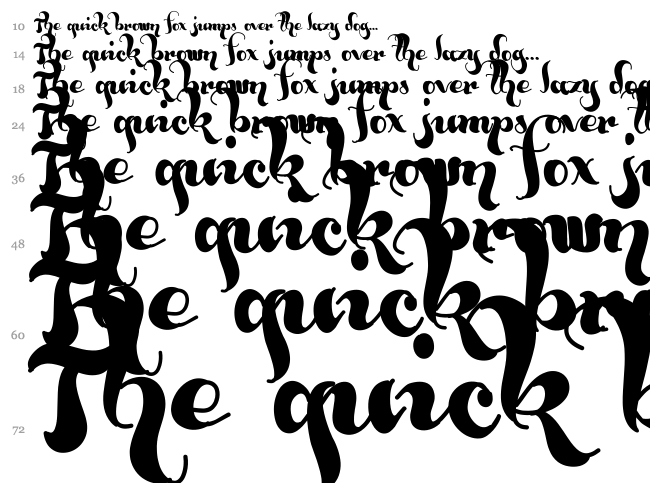 10 The quick brown fox jumps over the lazy dog...
14 The quick brown fox jumps over the lazy dog...
18 The quick brown fox jumps over the lazy dog
24 The quick brown fox jumps over
36 The quick brown fox
48 The quick brown
60 The quick
72 The quick